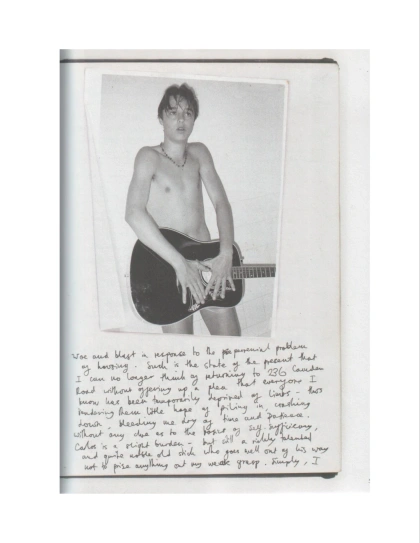 Woe and blast in response to the perennial problem
of housing. Such is the state of the present that
I can no longer think of returning to 236 Camden
Road without offering up a plea that everyone I
know has been temporarily deprived of limbs - thus
rendering them little hope of piling in, crashing
down, bleeding me dry of time and patience.
Without any clue as to the basics of self-sufficiency,
Carlos is a slight burden - but still a richly talented
and quite noble old stick who goes well out of his way
not to prise anything out my weak grasp. Simply, I